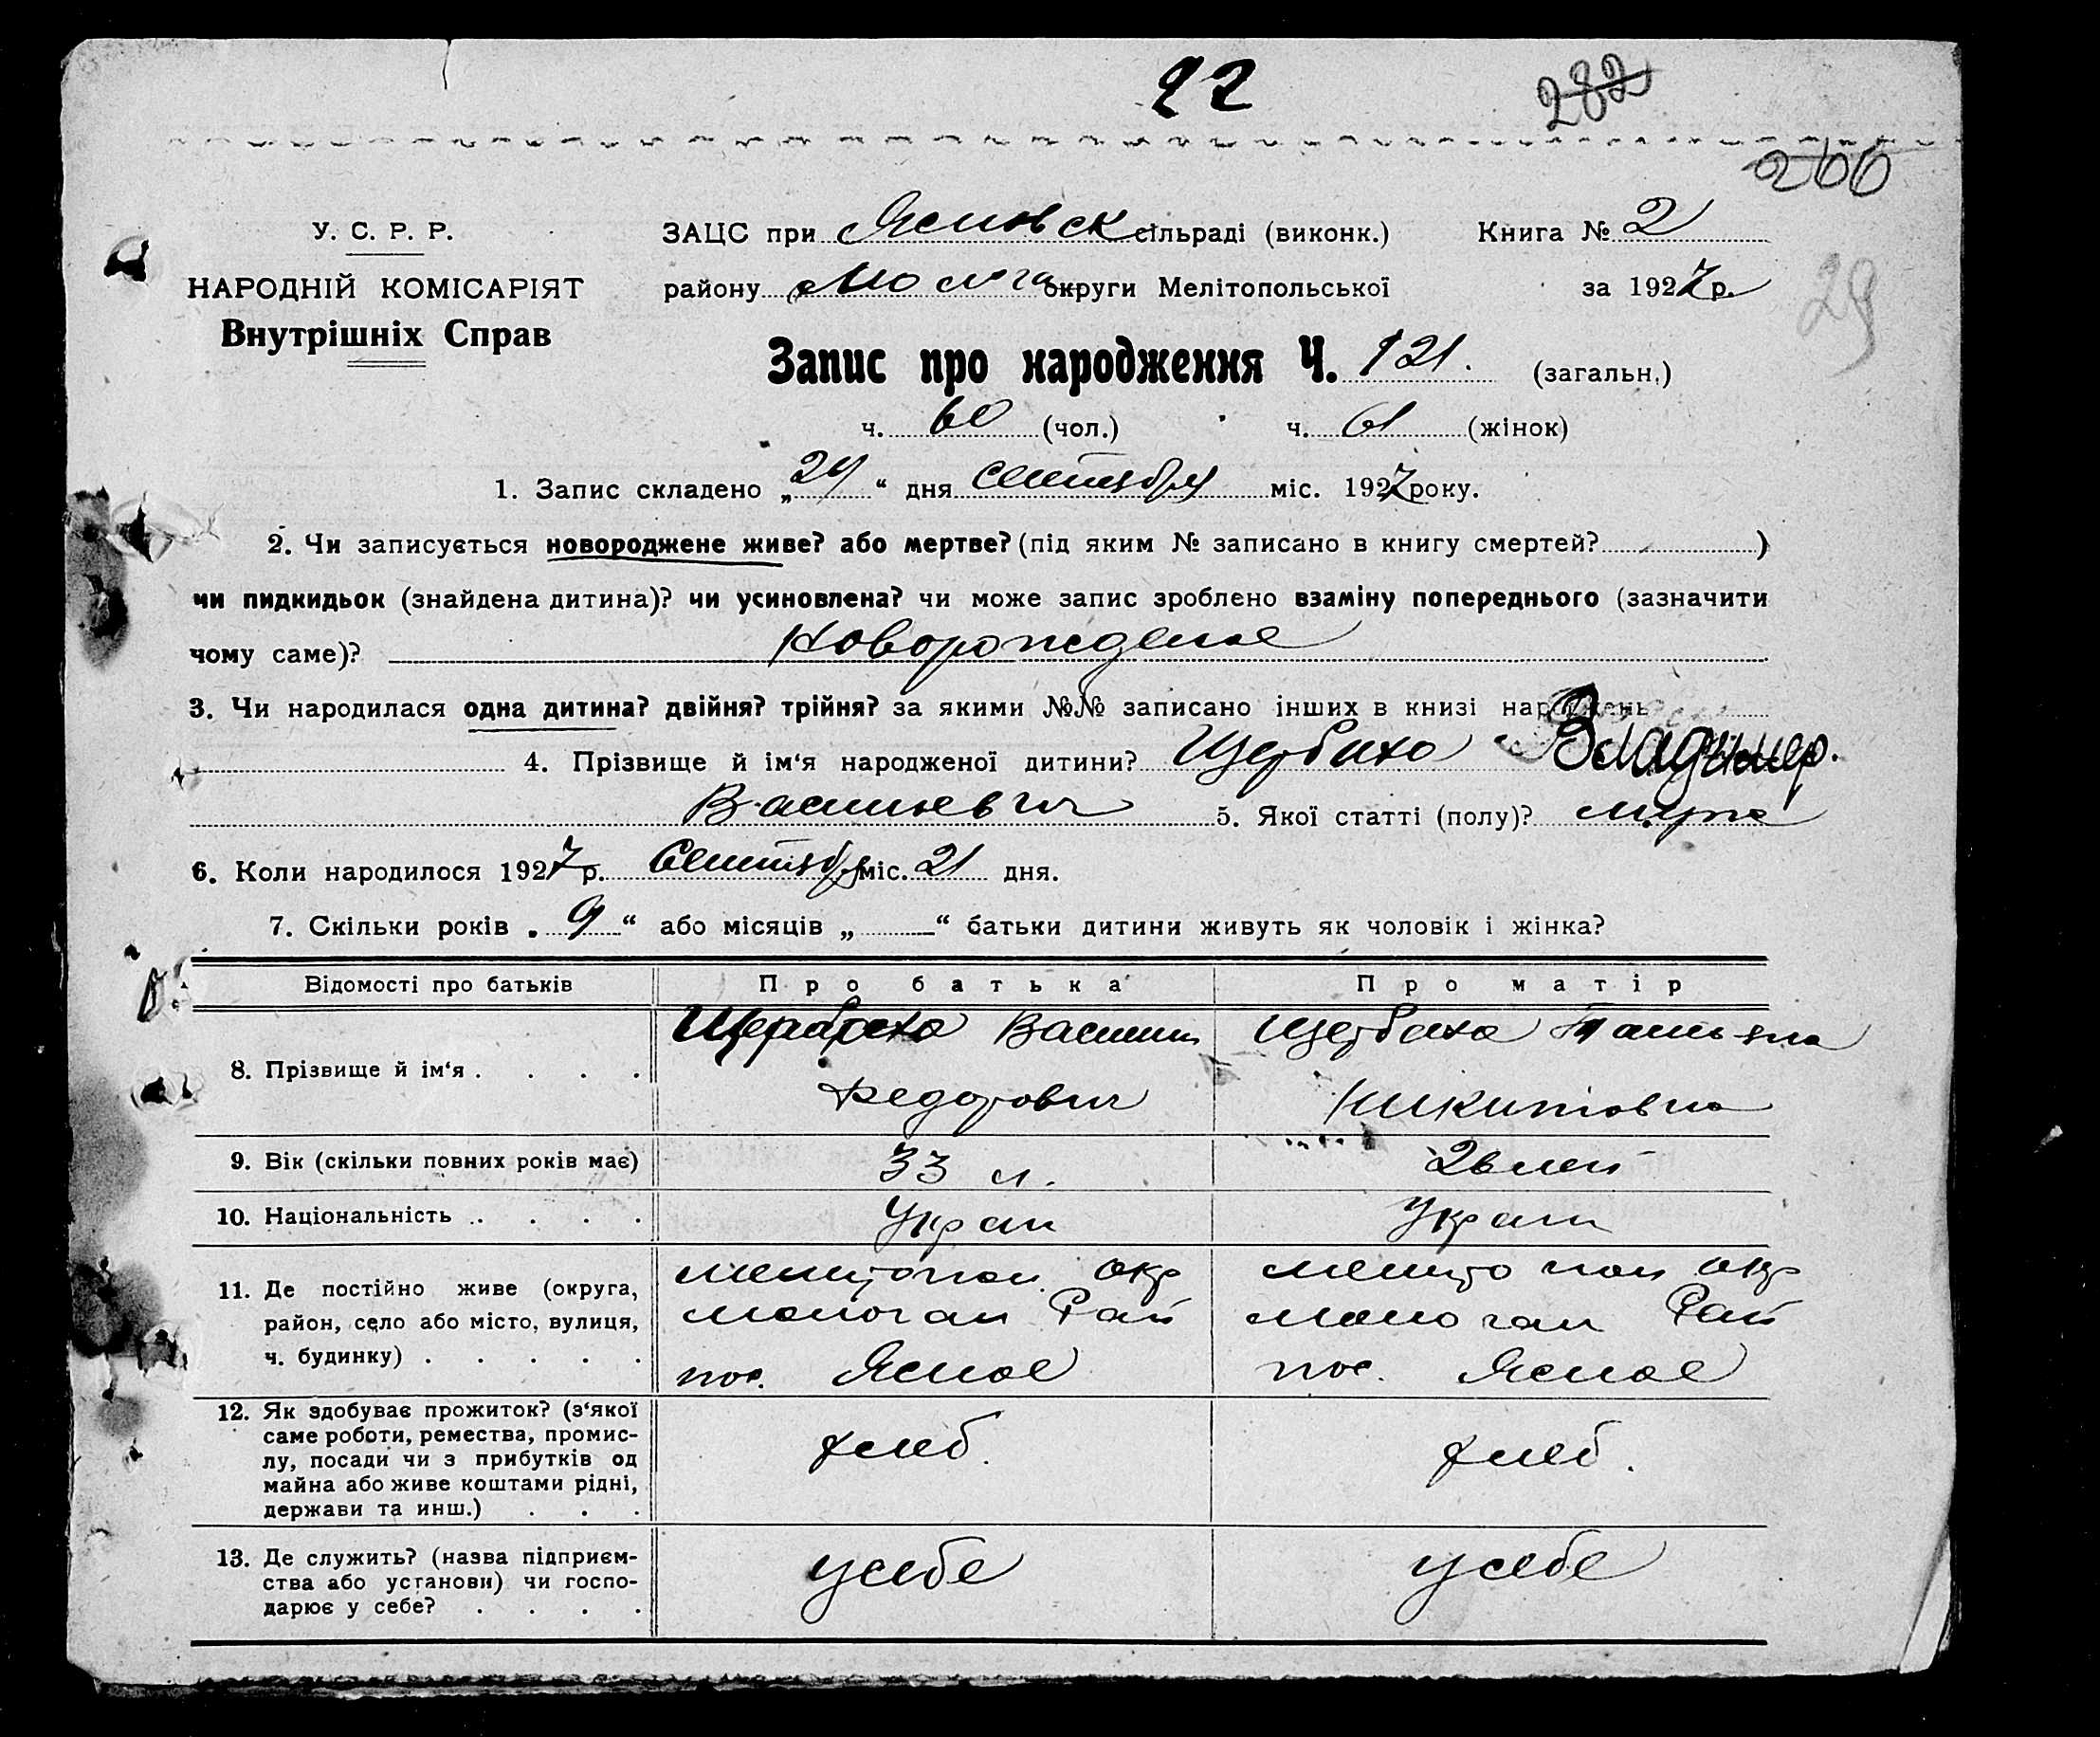 22
282
200
29
У. С. Р. Р.
НАРОДНІЙ КОМІСАРІЯТ
Внутрішніх Справ
ЗАЦС при Яснівск сільраді (виконк.) Книга № 2
району Молога округи Мелітопольської за 1927 р.
Запис про народження Ч. 121. (загальн.)
ч. 60 (чол.) ч. 61 (жінок)
1. Запис складено „29“ дня сентября міс. 1927 року.
2. Чи записується новороджене живе? або мертве? (під яким № записано в книгу смертей? )
чи пидкидьок (знайдена дитина)? чи усиновлена? чи може запис зроблено взаміну попереднього (зазначити
чому саме)? Новорожденое
3. Чи народилася одна дитина? двійня? трійня? за якими №№ записано інших в книзі народжень
4. Прізвище й ім‘я народженої дитини? Щербахо Владимер.
Васильевич 5. Якої статті (полу)? мужс
6. Коли народилося 1927 р. Сентября міс. 21 дня.
7. Скільки років „9“ або місяців „—“ батьки дитини живуть як чоловік і жінка?
Відомості про батьків Про батька Про матір
8. Прізвище й ім‘я . . . . Щербахо Васили Щербаха Татьяна
Федорович Никитовна
9. Вік (скільки повних років має) 33 л. 26 лет
10. Національність . . . . . Украи Украи
11. Де постійно живе (округа, район, село або місто, вулиця, ч. будинку) . . . . . Мелитопол. окр Мелитопол окр
Молочан Рай Молочан Рай
пос. Ясное пос. Ясное
12. Як здобуває прожиток? (з‘якої саме роботи, ремества, промис-
лу, посади чи з прибутків од
майна або живе коштами рідні,
держави та инш.) . . . хлеб. хлеб.
13. Де служить? (назва підприєм-
ства або установи) чи госпо-
дарює у себе? . . . . усебе усебе